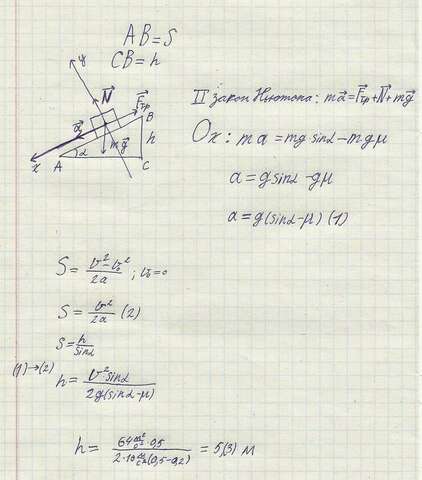 AB = S
CB = h
y
N⃗
F⃗тр
B
a⃗
h
mg⃗
α
x
A
C
II закон Ньютона: ma⃗ = F⃗тр + N⃗ + mg⃗
Ox: ma = mg sinα - mgμ
a = g sinα - gμ
a = g(sinα - μ) (1)
S = (v² - v₀²)/2a ; v₀ = 0
S = v²/2a (2)
S = h/sinα
(1)→(2) h = v² sinα / 2g(sinα - μ)
h = 64 м²/с² · 0,5 / 2·10 м/с² (0,5 - 0,2) = 5,(3) м